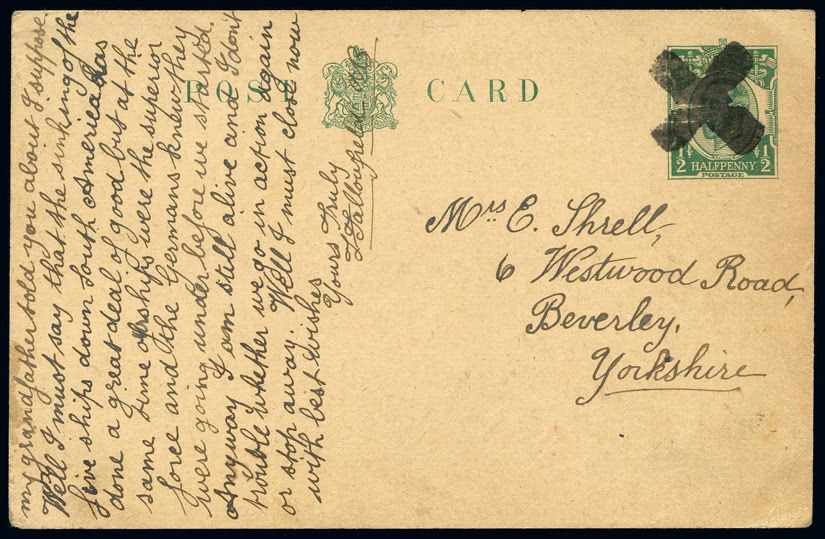 my grandfather told you about I suppose.
Well I must say that the sinking of the
five ships down South America has
done a great deal of good but at the
same time our ships were the superior
force and the Germans knew they
were going under before we started.
Anyway I am still alive and I don't
trouble whether we go in action again
or stop away. Well I must close now
with best wishes
Yours Truly
POST CARD
1/2 HALFPENNY 1/2
POSTAGE
Mrs E. Shrell,
6 Westwood Road,
Beverley,
Yorkshire